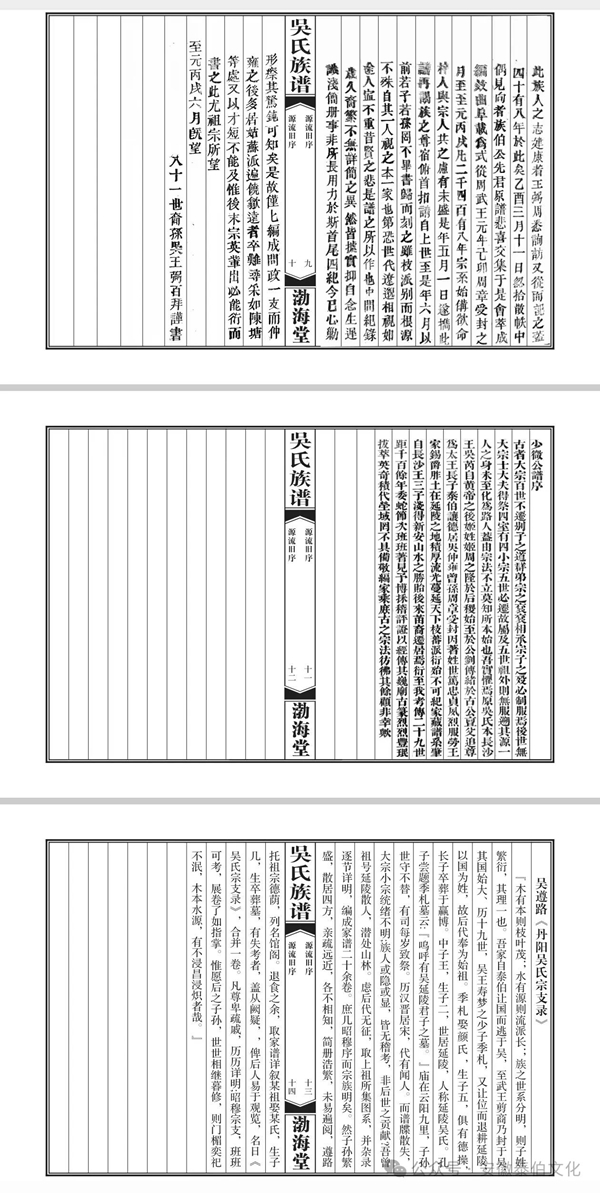 此族人之志達康者王弼周悉詢訪又從而記之蓋
四十有八年於此矣乙酉三月十一日認拾散帙中
偶見向者族伯公先君原譜悲喜交集于是會萃成
編敘曲阜載爲式從周武王元年己卯周章受封之
月至至元丙戌凡二千四百有八年宗桼始備欲命
梓人與宗人共之慮有未盡是年五月一日遂攜此
譜再謁族之尊宿俯首扣請自上世至是年六月以
前若子若孫罔不畢書歸而刻之雖枝派别而根源
不殊自其一人視之本一家也第恐世代遼遠相視如
塗人豈不重昔賢之悲是譜之所以作也中間紀錄
歲久裔繁不無詳簡之異然皆摭實抑自念生遲
識淺簡册事非所長用力於斯首尾四紀今已心勦
吳氏族谱
源流旧序
源流旧序
九
十
渤海堂
形瘵其駑鈍可知矣是故僅匕編成閭政一支而仲
雍之後多居姑蘇派遍饒歙遠者卒難尋采如陳塘
等處又以才短不能及惟後來宗英輩出必能衍而
書之此尤祖宗所望
至元丙戌六月旣望
八十一世裔孫吳王弼百拜謹書
少微公譜序
古者大宗百世不遷别子之道群弟宗之衰衰相承宗子之發必制服焉後世無
大宗士大夫得祭四室有四小宗五世必遷故屬及五世祖外則無服遡其源一
人之身未至化爲路人蓋由宗法不立莫知所本始也吾實懼焉原吳氏本長沙
王吳芮自黄帝之後姬姓姬周之隆於后稷始至於公劉傳緒於古公亶父追尊
爲太王長子泰伯讓德居吳仲雍曾孫周章受封因著姓世篤忠貞夙烈服勞王
家錫爵胙土在延陵之地積厚流光蔓延天下枝蕃派衍殆不可紀家藏譜系肇
自長沙王三子淺得新安山水之勝貽後來苗裔遷居焉衍至我考傳二十九世
距千百餘年委蛇節次班班著見予博採稽評證以經傳其巍廟古篆烈烈豐珉
拔萃英奇積代垒域罔不具備敬編家乘庶古之宗法彷彿其餘顧非幸歟
吳氏族谱
源流旧序
源流旧序
十一
十二
渤海堂
吴遵路《丹阳吴氏宗支录》
『木有本则枝叶茂；水有源则流派长；族之世系分明，则子姓
繁衍，其理一也。吾家自泰伯让国而逃于吴，至武王剪商乃封于吴
其国始大、历十九世，吴王寿梦之少子季札，又让位而退耕延陵
以国为姓，故后代奉为始祖。季札娶颜氏，生子五，俱有德操，
长子卒葬于嬴博。中子王，生子二，世居延陵，人称延陵吴氏。孔
子尝题季札墓云：『呜呼有吴延陵君子之墓。』庙在云阳九里，子孙
世守不替，有司每岁致祭。历汉晋居宋，代有闻人。而谱牒散失，
大宗小宗统绪不明；族人或隐或显，皆无稽考，非后世之贡献?吾曾
祖号延陵散人，潜处山林。虑后代无征，取上祖所集图系，并杂录
逐节详明，编成家谱二十余卷。庶几昭穆序而宗族明矣。然子孙繁
盛，散居四方，亲疏远近，各不相知，简册浩繁，未易遍阅，遵路
吳氏族谱
源流旧序
源流旧序
十三
十四
渤海堂
托祖宗德荫，列名馆阁。退食之余，取家谱详叙某祖娶某氏，生子
几，生卒葬墓，有失考者，盖从阙疑，，俾后人易于观览，名曰《
吴氏宗支录》，合并一卷。凡尊卑疏戚，历历详明；昭穆宗支，班班
可考，展卷了如指掌。惟愿后之子孙，世世相继暮修，则门楣奕祀
不泯，木本水源，有不浸昌浸炽者哉。』
公众号·安徽泰伯文化